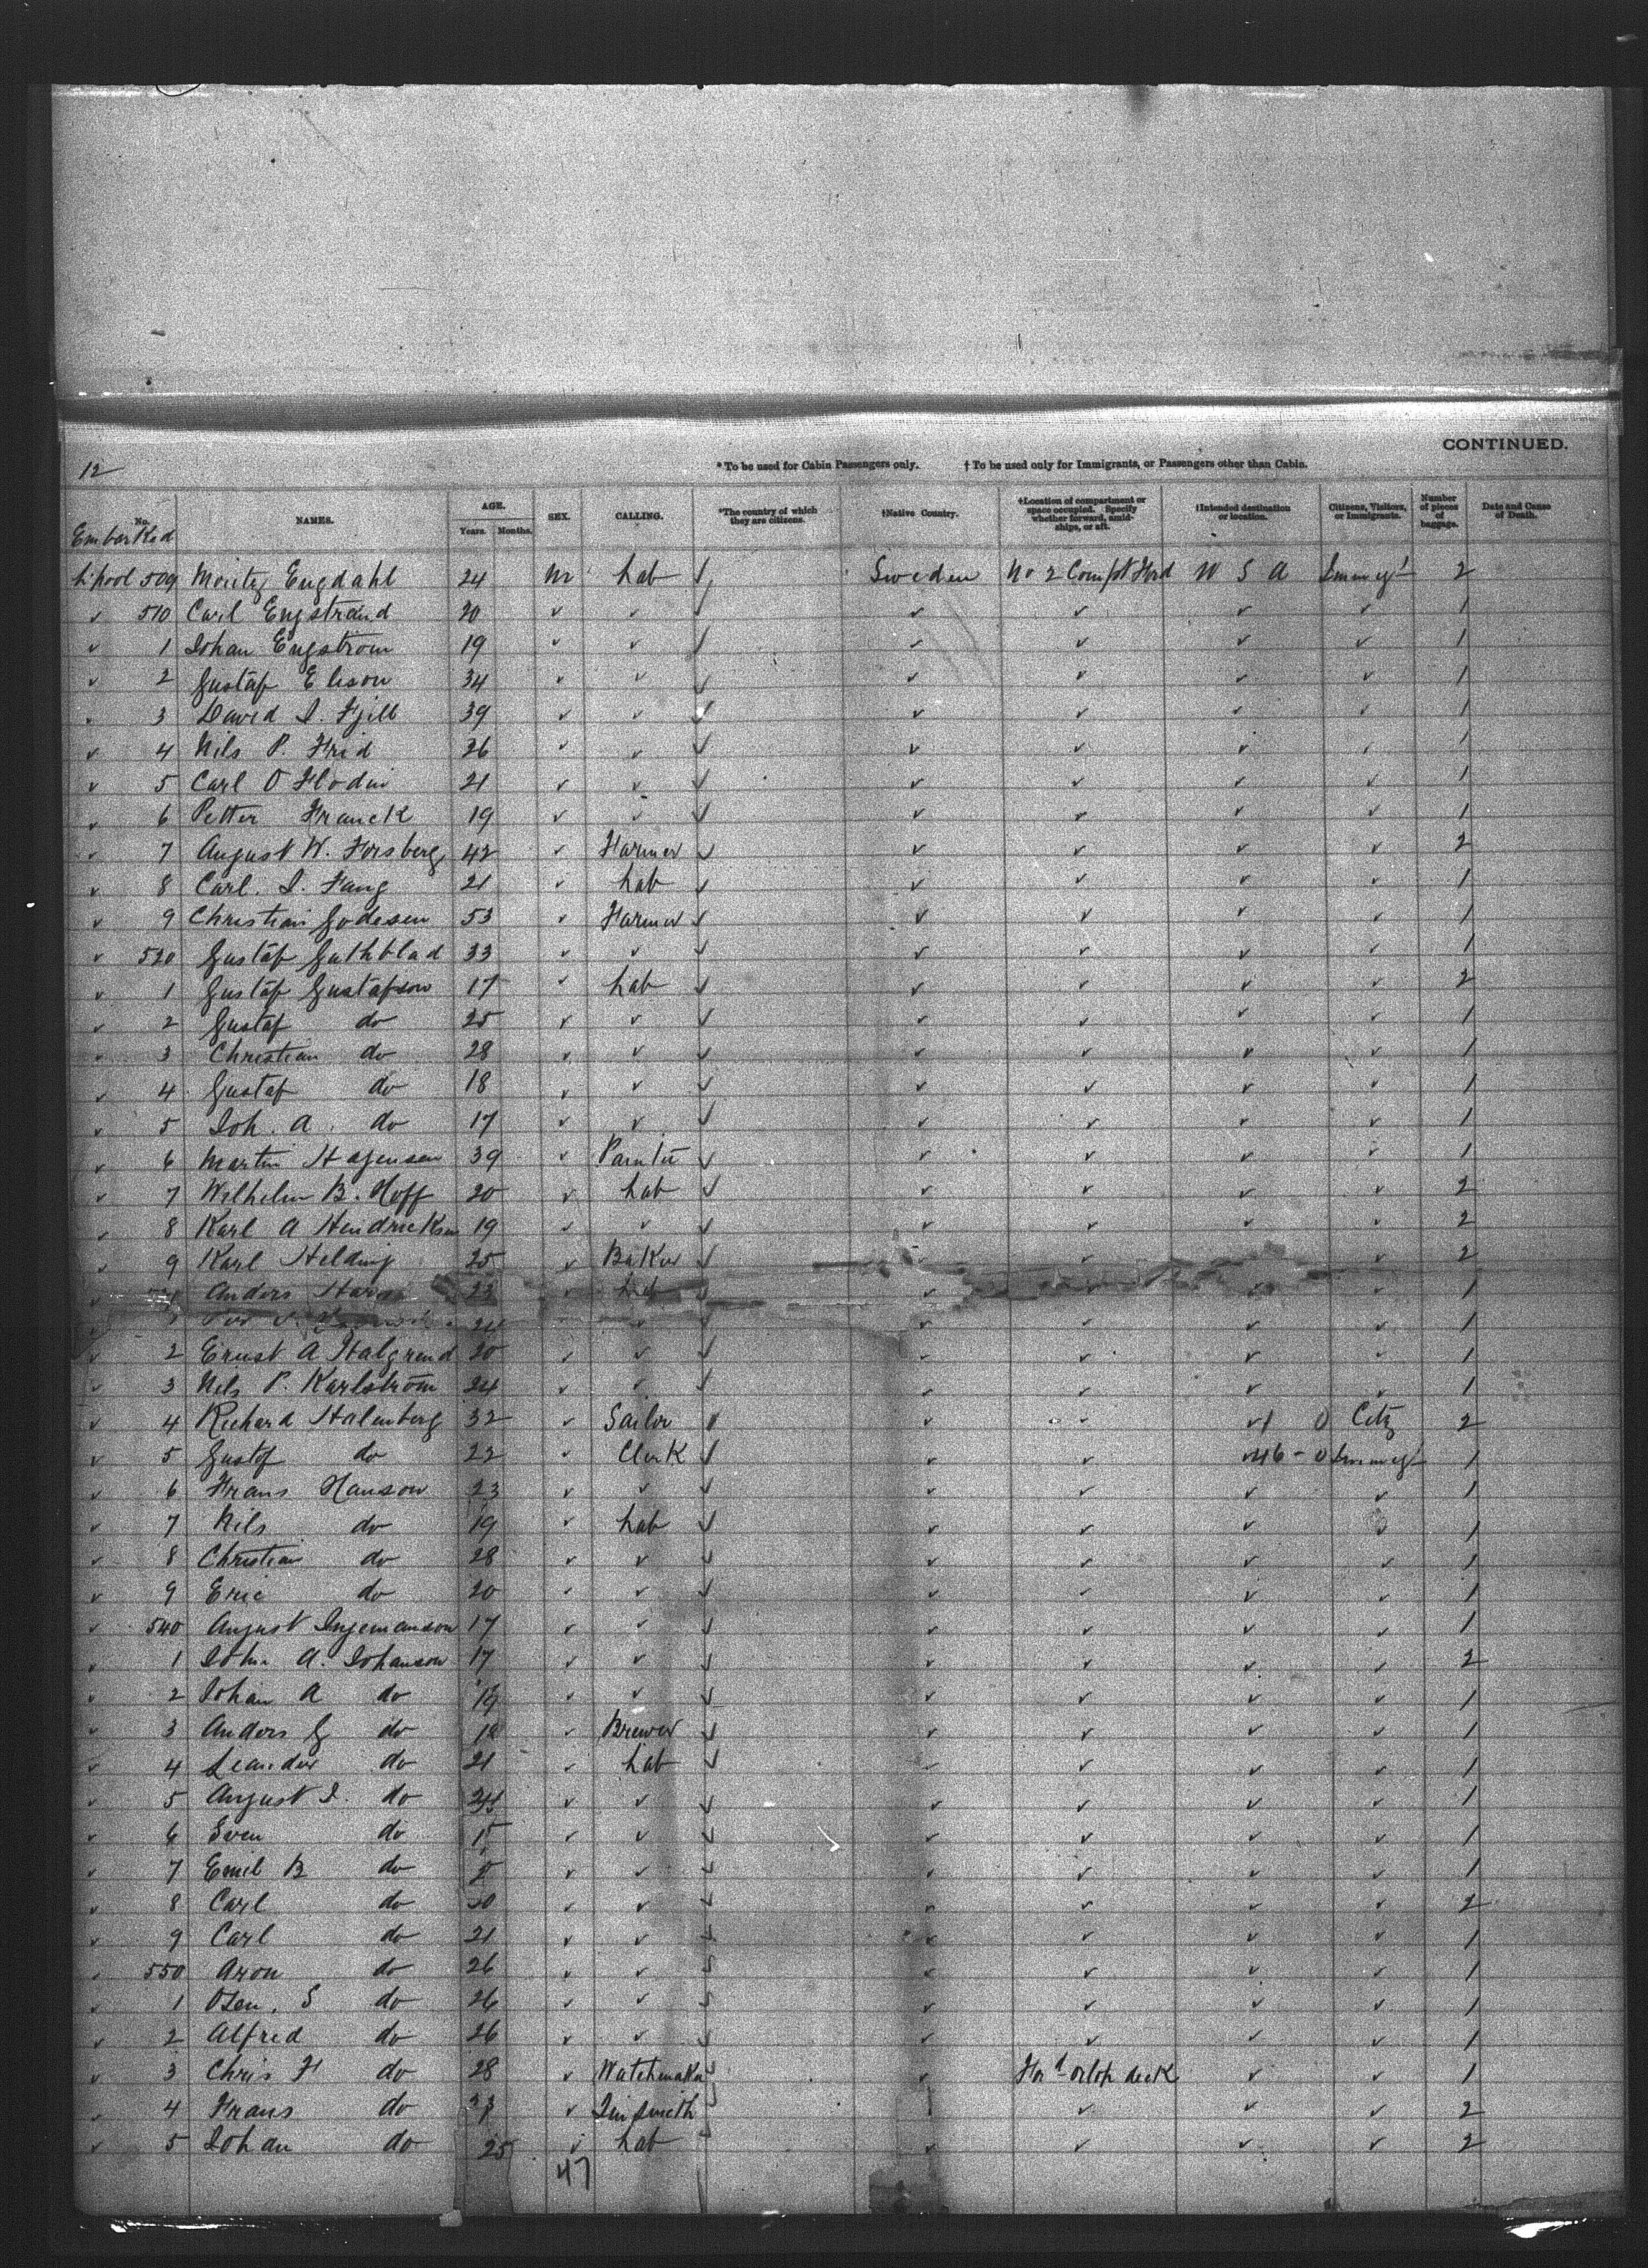 CONTINUED.
12 * To be used for Cabin Passengers only. † To be used only for Immigrants, or Passengers other than Cabin.
No. Embarked NAMES. AGE. Years. Months. SEX. CALLING. *The country of which they are citizens. †Native Country. †Location of compartment or space occupied. Specify whether forward, amidships, or aft. †Intended destination or location. Citizens, Visitors, or Immigrants. Number of pieces of baggage. Date and Cause of Death.
L'pool 509 Moritz Engdahl 24 M Lab √ Sweden No 2 Compt Ford U S A Immigt 2
✓ 510 Carl Engstrand 20 ✓ ✓ √ ✓ ✓ ✓ ✓ 1
✓ 1 Johan Engström 19 ✓ ✓ √ ✓ ✓ ✓ ✓ 1
✓ 2 Gustaf Elison 34 ✓ ✓ √ ✓ ✓ ✓ ✓ 1
✓ 3 David I. Fjell 39 ✓ ✓ √ ✓ ✓ ✓ ✓ 1
✓ 4 Nils P. Frid 26 ✓ ✓ √ ✓ ✓ ✓ ✓ 1
✓ 5 Carl O Flodin 21 ✓ ✓ √ ✓ ✓ ✓ ✓ 1
✓ 6 Petter Franck 19 ✓ ✓ √ ✓ ✓ ✓ ✓ 1
✓ 7 August W. Forsberg 42 ✓ Farmer √ ✓ ✓ ✓ ✓ 2
✓ 8 Carl. I. Fang 21 ✓ Lab √ ✓ ✓ ✓ ✓ 1
✓ 9 Christian Godesen 53 ✓ Farmer √ ✓ ✓ ✓ ✓ 1
✓ 520 Gustaf Guthblad 33 ✓ ✓ √ ✓ ✓ ✓ ✓ 1
✓ 1 Gustaf Gustafson 17 ✓ Lab √ ✓ ✓ ✓ ✓ 2
✓ 2 Gustaf do 25 ✓ ✓ √ ✓ ✓ ✓ ✓ 1
✓ 3 Christian do 28 ✓ ✓ √ ✓ ✓ ✓ ✓ 1
✓ 4 Gustaf do 18 ✓ ✓ √ ✓ ✓ ✓ ✓ 1
✓ 5 Joh. A. do 17 ✓ ✓ √ ✓ ✓ ✓ ✓ 1
✓ 6 Martin Hagensen 39 ✓ Painter √ ✓ ✓ ✓ ✓ 1
✓ 7 Wilhelm B. Hoff 20 ✓ Lab √ ✓ ✓ ✓ ✓ 2
✓ 8 Karl A Hendrickson 19 ✓ ✓ √ ✓ ✓ ✓ ✓ 2
✓ 9 Karl Helding 25 ✓ Baker √ ✓ ✓ ✓ ✓ 2
✓ Anders 23 ✓ Lab √ ✓ ✓ ✓ ✓ 1
✓ 24 ✓ √ ✓ ✓ ✓ ✓ 1
✓ 2 Ernst A Halgrend 20 ✓ ✓ √ ✓ ✓ ✓ ✓ 1
✓ 3 Nils P. Karlström 24 ✓ ✓ √ ✓ ✓ ✓ ✓ 1
✓ 4 Richard Holmberg 32 ✓ Sailor ✓ ✓ ✓ 1 0 Citz 2
✓ 5 Gustaf do 22 ✓ Clerk √ ✓ ✓ ✓ 46 - 0 Immigt 1
✓ 6 Frans Hanson 23 ✓ ✓ √ ✓ ✓ ✓ ✓ 1
✓ 7 Nils do 19 ✓ Lab √ ✓ ✓ ✓ ✓ 1
✓ 8 Christian do 28 ✓ ✓ √ ✓ ✓ ✓ ✓ 1
✓ 9 Eric do 20 ✓ ✓ √ ✓ ✓ ✓ ✓ 1
✓ 540 August Ingemandson 17 ✓ ✓ √ ✓ ✓ ✓ ✓ 1
✓ 1 John A. Johanson 17 ✓ ✓ √ ✓ ✓ ✓ ✓ 2
✓ 2 Johan A do 19 ✓ ✓ √ ✓ ✓ ✓ ✓ 1
✓ 3 Anders G do 18 ✓ Brewer √ ✓ ✓ ✓ ✓ 1
✓ 4 Leander do 21 ✓ Lab √ ✓ ✓ ✓ ✓ 1
✓ 5 August I. do ✓ ✓ √ ✓ ✓ ✓ ✓ 1
✓ 6 Sven do ✓ ✓ √ ✓ ✓ ✓ ✓ 1
✓ 7 Emil B do ✓ ✓ √ ✓ ✓ ✓ ✓ 1
✓ 8 Carl do ✓ ✓ √ ✓ ✓ ✓ ✓ 2
✓ 9 Carl do 21 ✓ ✓ √ ✓ ✓ ✓ ✓ 1
✓ 550 Aron do 26 ✓ ✓ √ ✓ ✓ ✓ ✓ 1
✓ 1 Olen. S do 26 ✓ ✓ √ ✓ ✓ ✓ ✓ 1
✓ 2 Alfred do 26 ✓ ✓ √ ✓ ✓ ✓ ✓ 1
✓ 3 Chris F do 28 ✓ Watchmaker √ ✓ Ford orlop deck ✓ ✓ 1
✓ 4 Frans do ✓ Tinsmith √ ✓ ✓ ✓ ✓ 2
✓ 5 Johan do 25 ✓ Lab √ ✓ ✓ ✓ ✓ 2
47